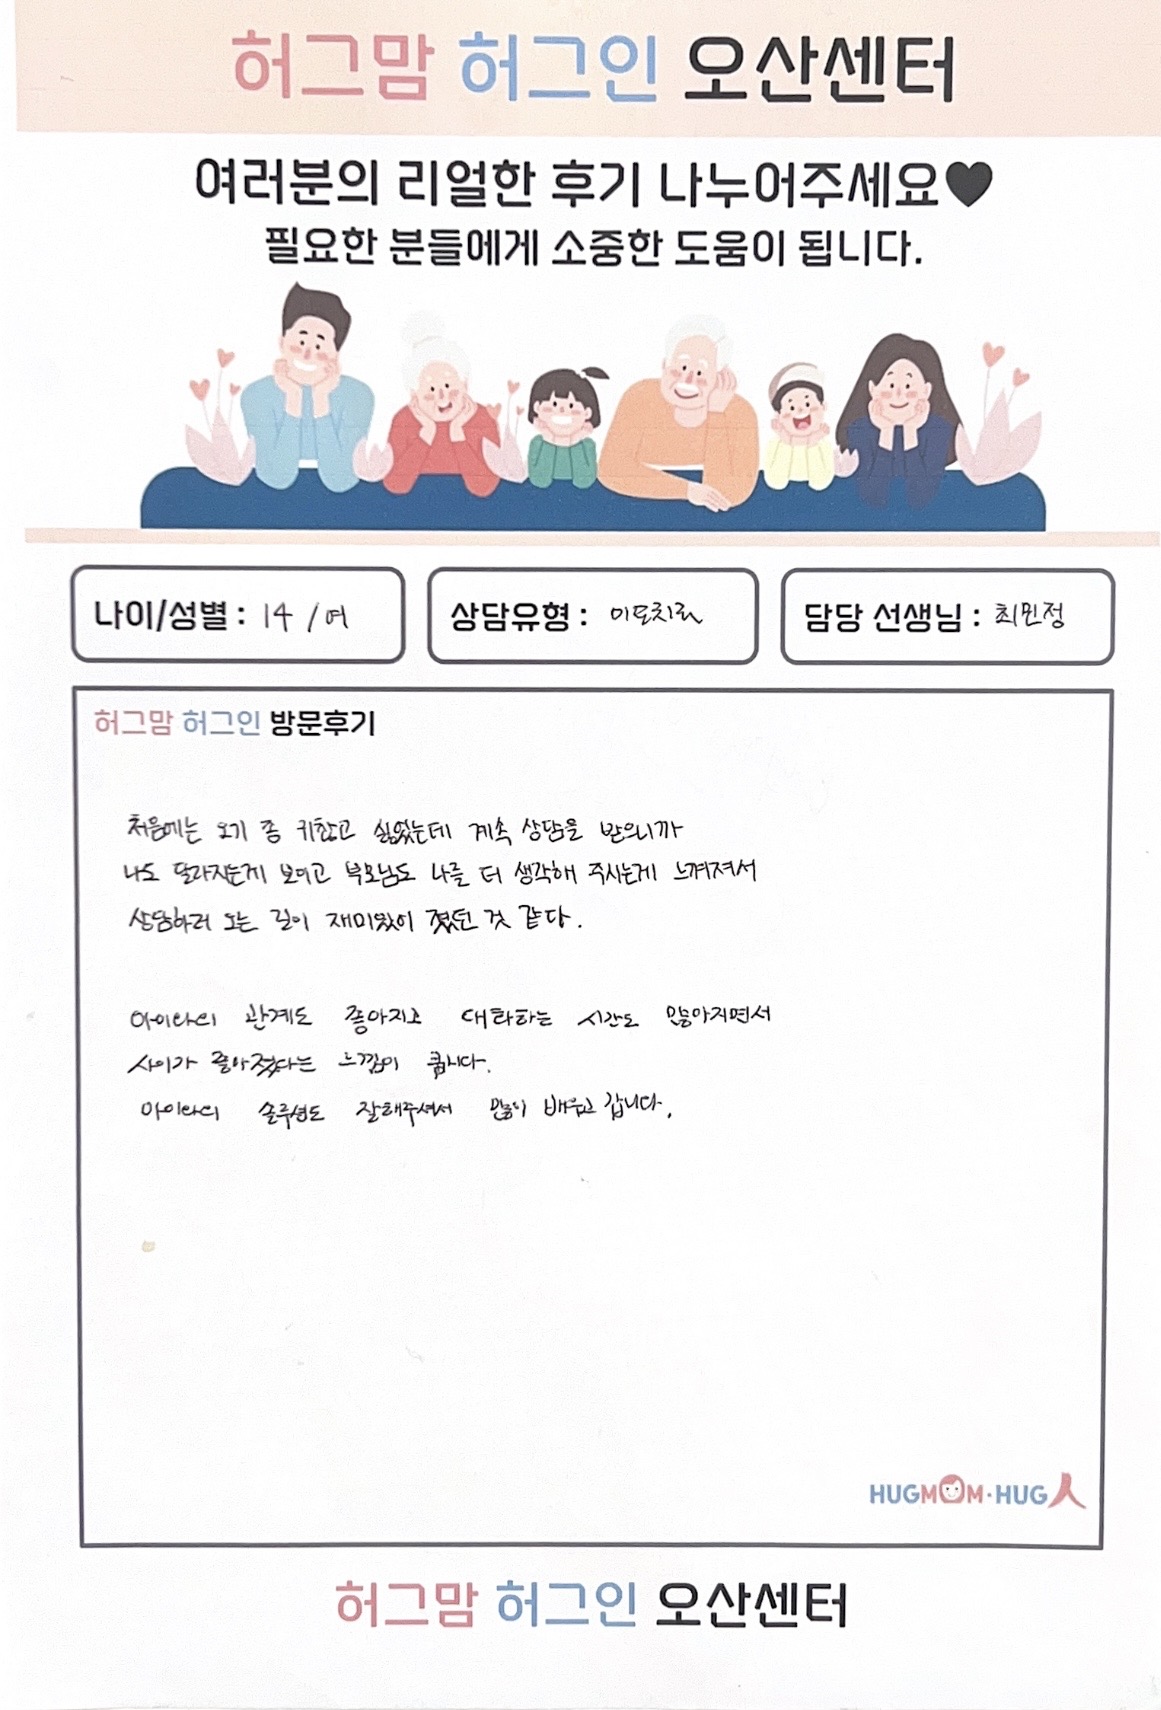 허그맘 허그인 오산센터
여러분의 리얼한 후기 나누어주세요♥
필요한 분들에게 소중한 도움이 됩니다.
나이/성별 : 14 / 여
상담유형 : 미모치료
담당 선생님 : 최민정
허그맘 허그인 방문후기
처음에는 오기 좀 귀찮고 싫었는데 계속 상담을 받으니까
나도 달라지는게 보이고 부모님도 나를 더 생각해 주시는게 느껴져서
상담하러 오는 길이 재미있이 졌던 것 같다.
아이와의 관계도 좋아지고 대화하는 시간도 많아지면서
사이가 좋아졌다는 느낌이 큽니다.
아이와의 솔루션도 잘해주셔서 많이 배우고 갑니다.
HUGMOM·HUG人
허그맘 허그인 오산센터